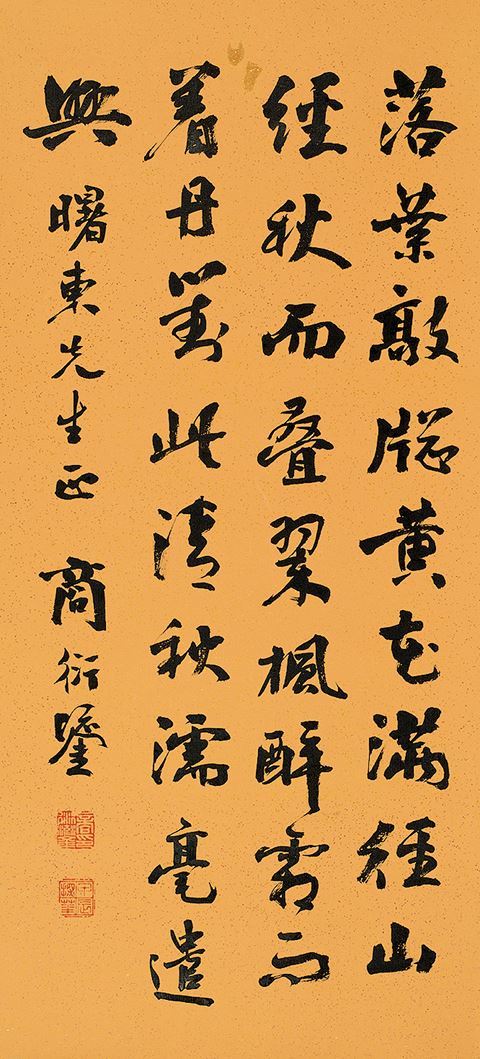 落葉敲牕黃花滿徑山
經秋而叠翠楓醉霜而
着丹對此清秋濡毫遣
興 曙東先生正 商衍鎏
甲辰探華